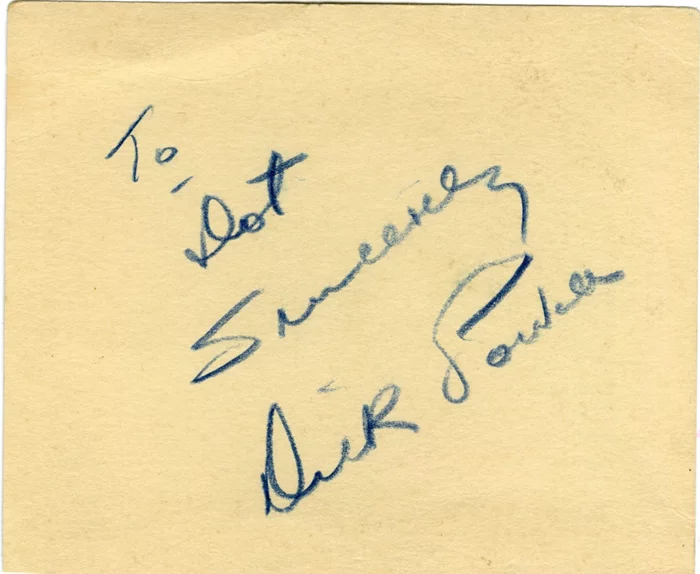 To
Dot
Sincerely
Dick Powell